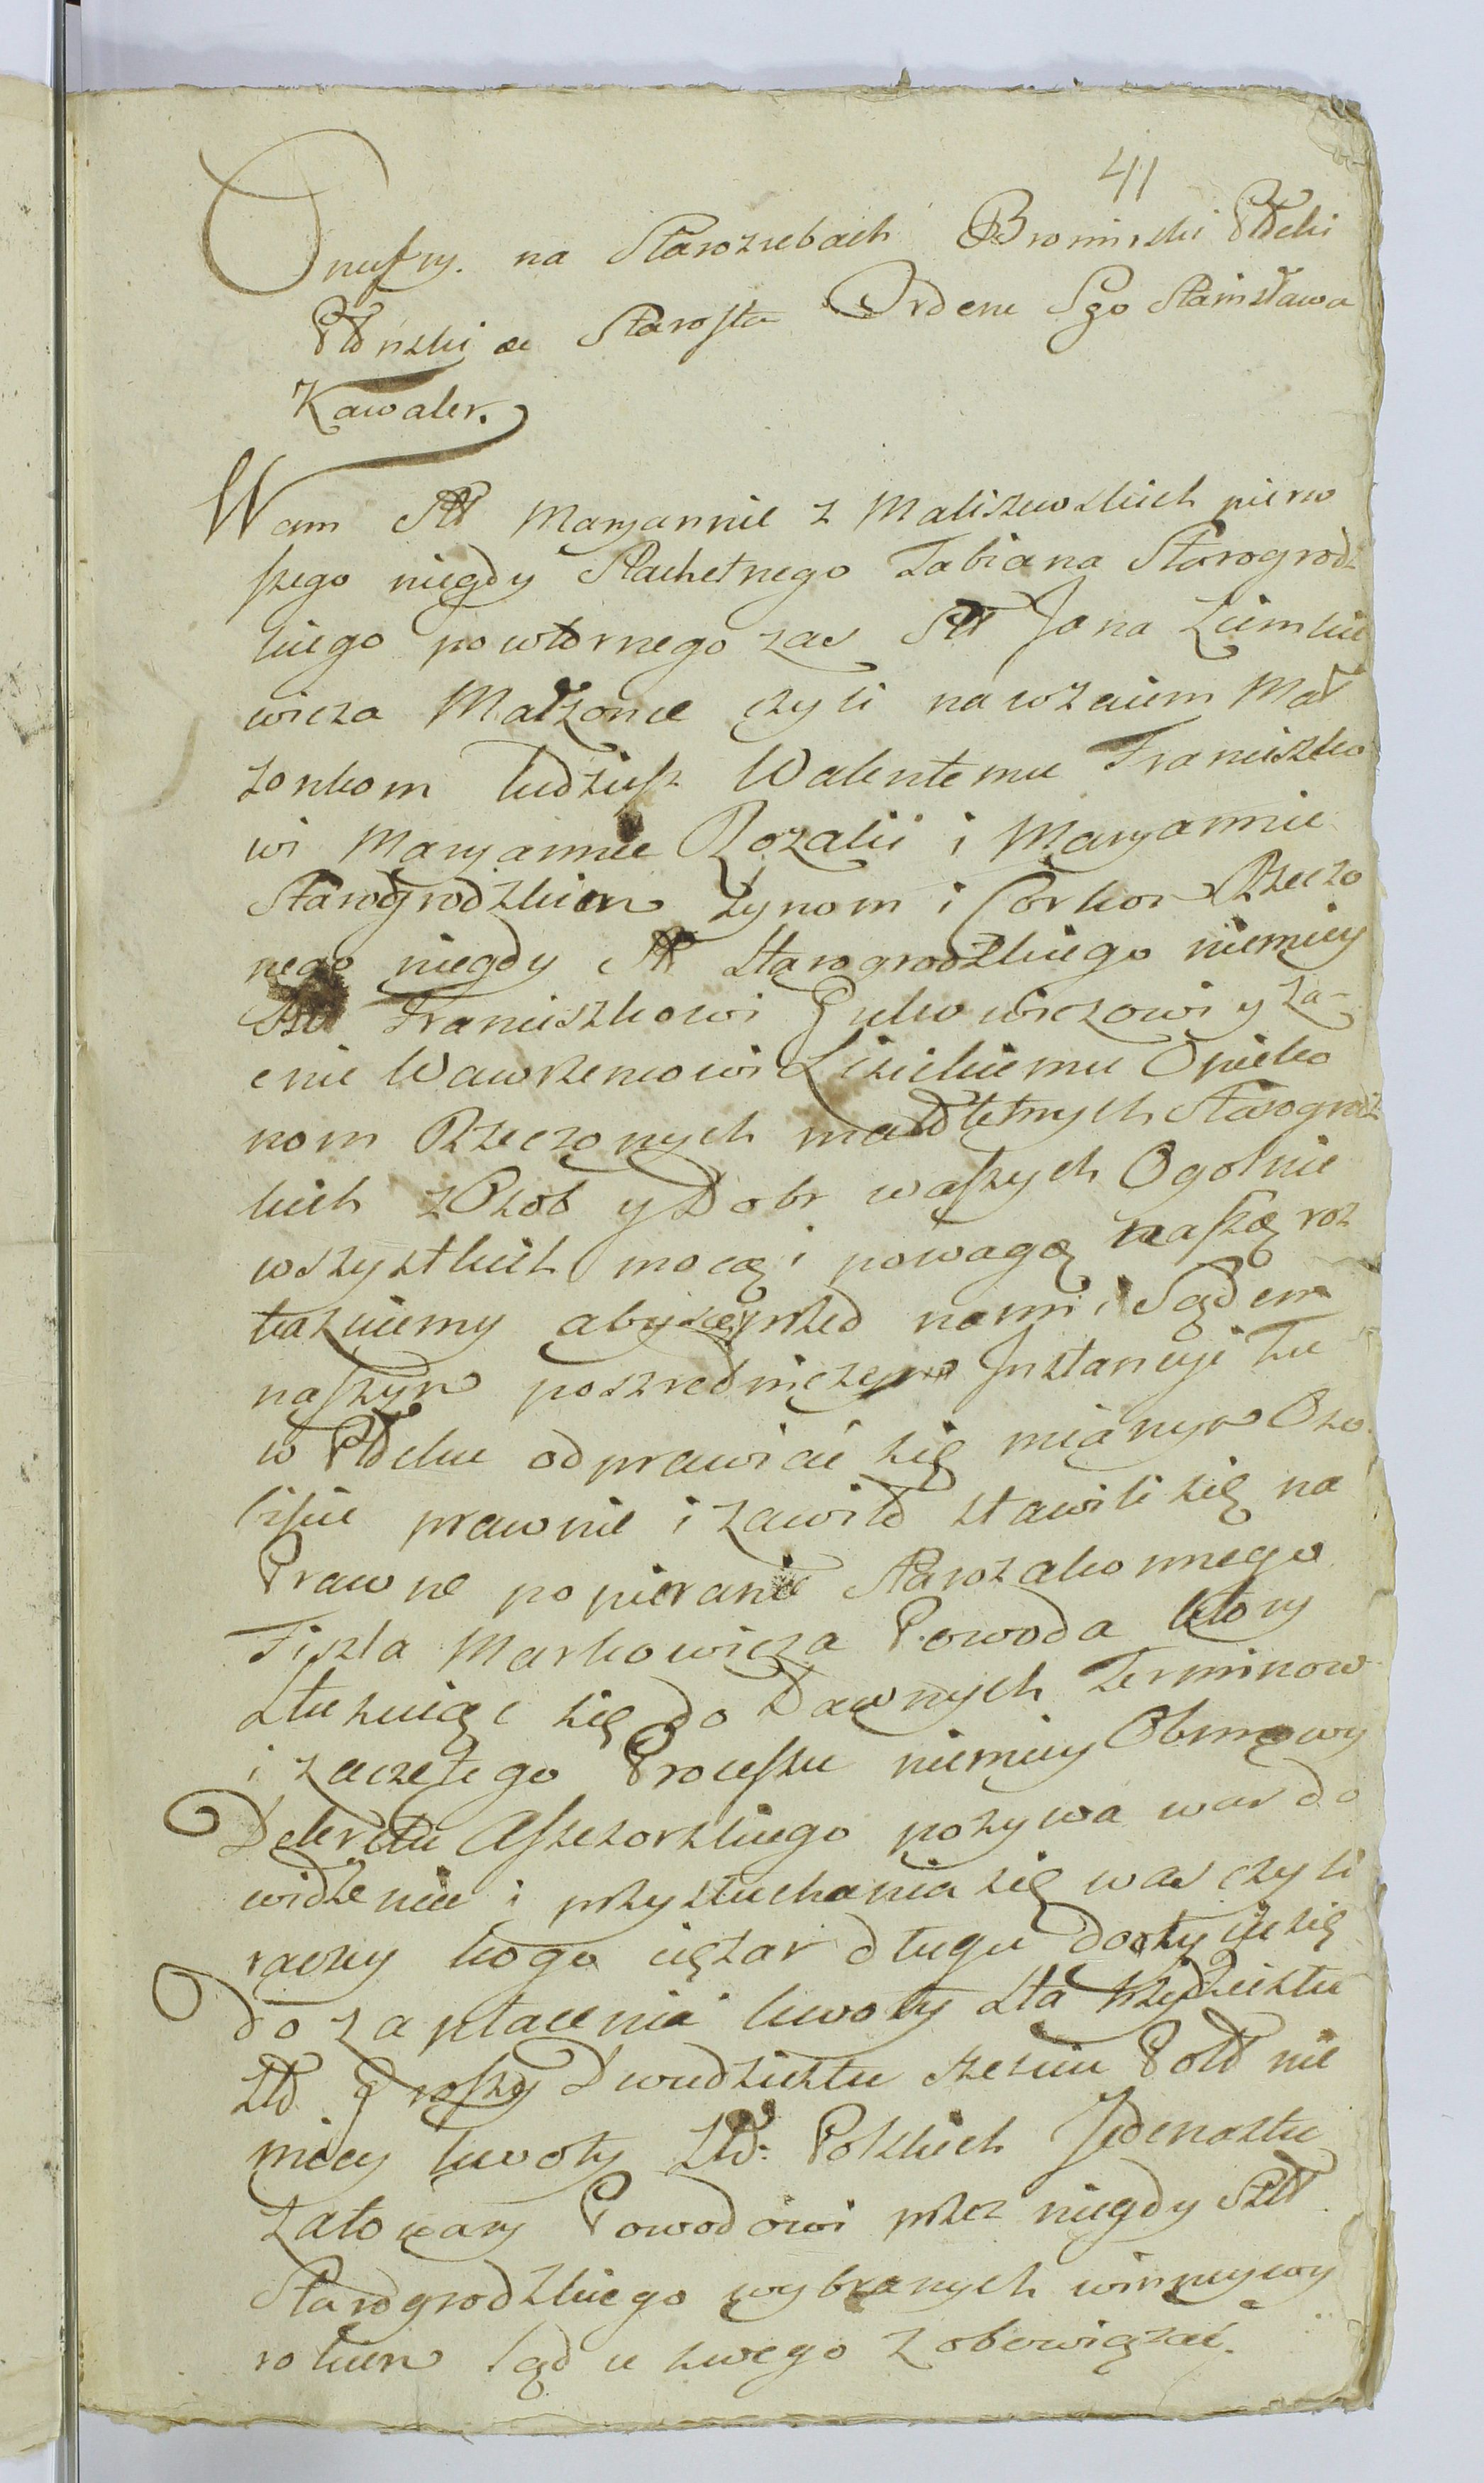 41
Onufry na Starozrebach Bromirski Płcki
Płński &c Starosta Orderu Sgo Stanisława
Kawaler.
Wam Maryannie z Maliszewskich pierw
szego niegdy Slachetnego Fabiana Starogrodz
kiego powtornego zas Jana Ziemkie
wicza Małżonce czyli nawzaiem Mał
żonkom tudziesz Walentemu Franciszko
wi Maryannie Rozalii i Maryannie
Starogrodzkim Synom i Corkom Rzeczo
nego niegdy Starogrodzkiego niemniey
Franciszkowi Gulkowiczowi y Za-
cnie Wawrzencowi Lisickiemu Opieku
nom Rzeczonych małoletnych Starogrodz
kich z Osob y Dobr waszych Ogolnie
wszystkich mocą i powagą naszą roz
kazuiemy abyscie przed nami i Sądem
naszym poszredniczym Instancyi Tu
w Płcku odprawiać się mianym Oso
biscie prawnie i zawito stawili się na
Prawne popieranie Starozakonnego
Fiszla Markowicza Powoda ktory
Stusuiąc się do Dawnych Terminow
i zaczętego Processu niemniey Obmowy
Dekretu Assesorskiego pozywa was do
widzenia i przysłuchania się was czyli
raczey kogo ciężar długu dotycze się
do zapłacenia kwoty Sta trzydziestu
Zło Groszy Dwudziestu szesciu Pol nie
mniey kwoty Zło: Polskich Jedenastu
Zato wary Powodowi przez niegdy
Starogrodzkiego wybranych winney wy
rokiem Sądu swego zobowiązać.